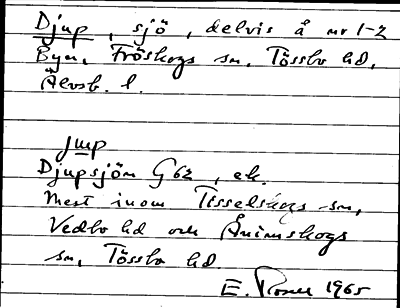 Djup, sjö, delvis å nr 1-2
Byn, Fröskogs sn, Tössbo hd,
Älvsb. l.
jup
Djupsjön G62, ek.
Mest inom Tisselskogs sn,
Vedbo hd och Ånimskogs
sn, Tössbo hd.
E. 1965